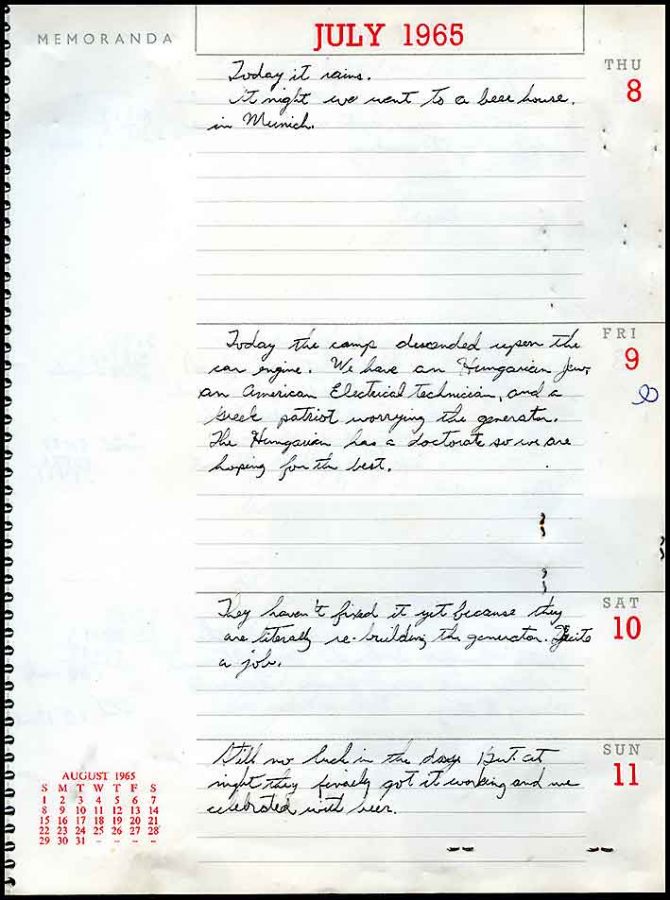 MEMORANDA
JULY 1965
THU
8
Today it rains.
At night we went to a beer house.
in Munich.
FRI
9
Today the camp descended upon the
car engine. We have an Hungarian Jew,
an American Electrical technician, and a
Greek patriot worrying the generator.
The Hungarian has a doctorate so we are
hoping for the best.
SAT
10
They haven't fixed it yet because they
are literally re-building the generator. Quite
a job.
SUN
11
Still no luck in the day. But at
night they finally got it working and we
celebrated with beer.
AUGUST 1965
S M T W T F S
1 2 3 4 5 6 7
8 9 10 11 12 13 14
15 16 17 18 19 20 21
22 23 24 25 26 27 28
29 30 31 – – – –